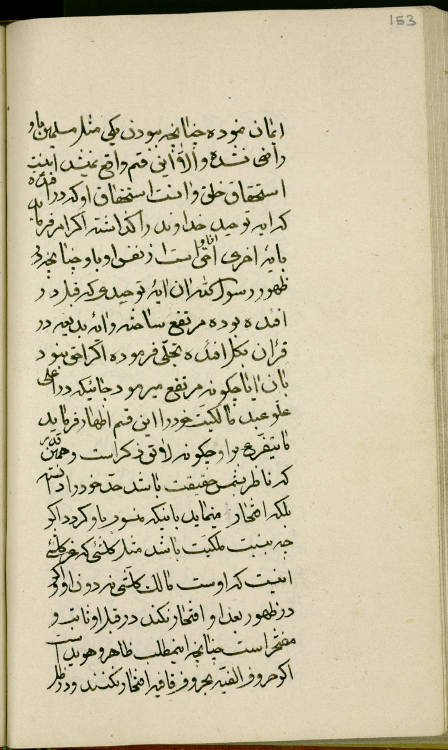 153
ایمان نموده چنانچه نبودن یکی مثل سلمن باو
راضی نشده والا این قسم واقع نمیشد اینست
استحقاق خلق و اینست استحقاق او که در افئده
که آیه توحید خداوند را گذاشته اگر امر فرماید
بآیه اخری اقوی است از نفس او باو چنانچه در
ظهور رسول الله ان آیهٔ توحیدی که قبل در
افئده بوده مرتفع ساخته و آیه بدیعه در
قرآن بکل افئده تجلی فرموده اگر راضی نبود
بان ایا چگونه مرتفع میرمود جائیکه در اعلی
علو عبد مالکیت خود را این قسم اظهار فرماید
ما یتفرع بر او چگونه لایق ذکر است و همین قدر
که ناظر بشمس حقیقت باشد حد خود را دانسته
بلکه افتخار مینماید بانیکه منسوب باو گردد اگر
چه بنسبت ملکیت باشد مثل کلشیٔ که غیر کلشیٔ
نیست که اوست مالک کلشیٔ نه دون او اگر
در ظهور بعد او افتخار نکند در قبل او ثابت و
مفتخر است چنانچه اینمطلب ظاهر و هویدا است
اگر حروف الفیه بحروف قافیه افتخار نکنند و در ظل